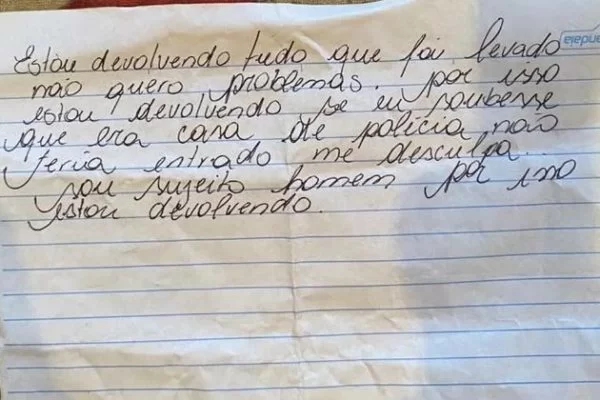 Estou devolvendo tudo que foi levado
não quero problemas. por isso
estou devolvendo se eu soubesse
que era casa de polícia não
teria entrado me desculpa.
sou sujeito homem por isso
estou devolvendo.